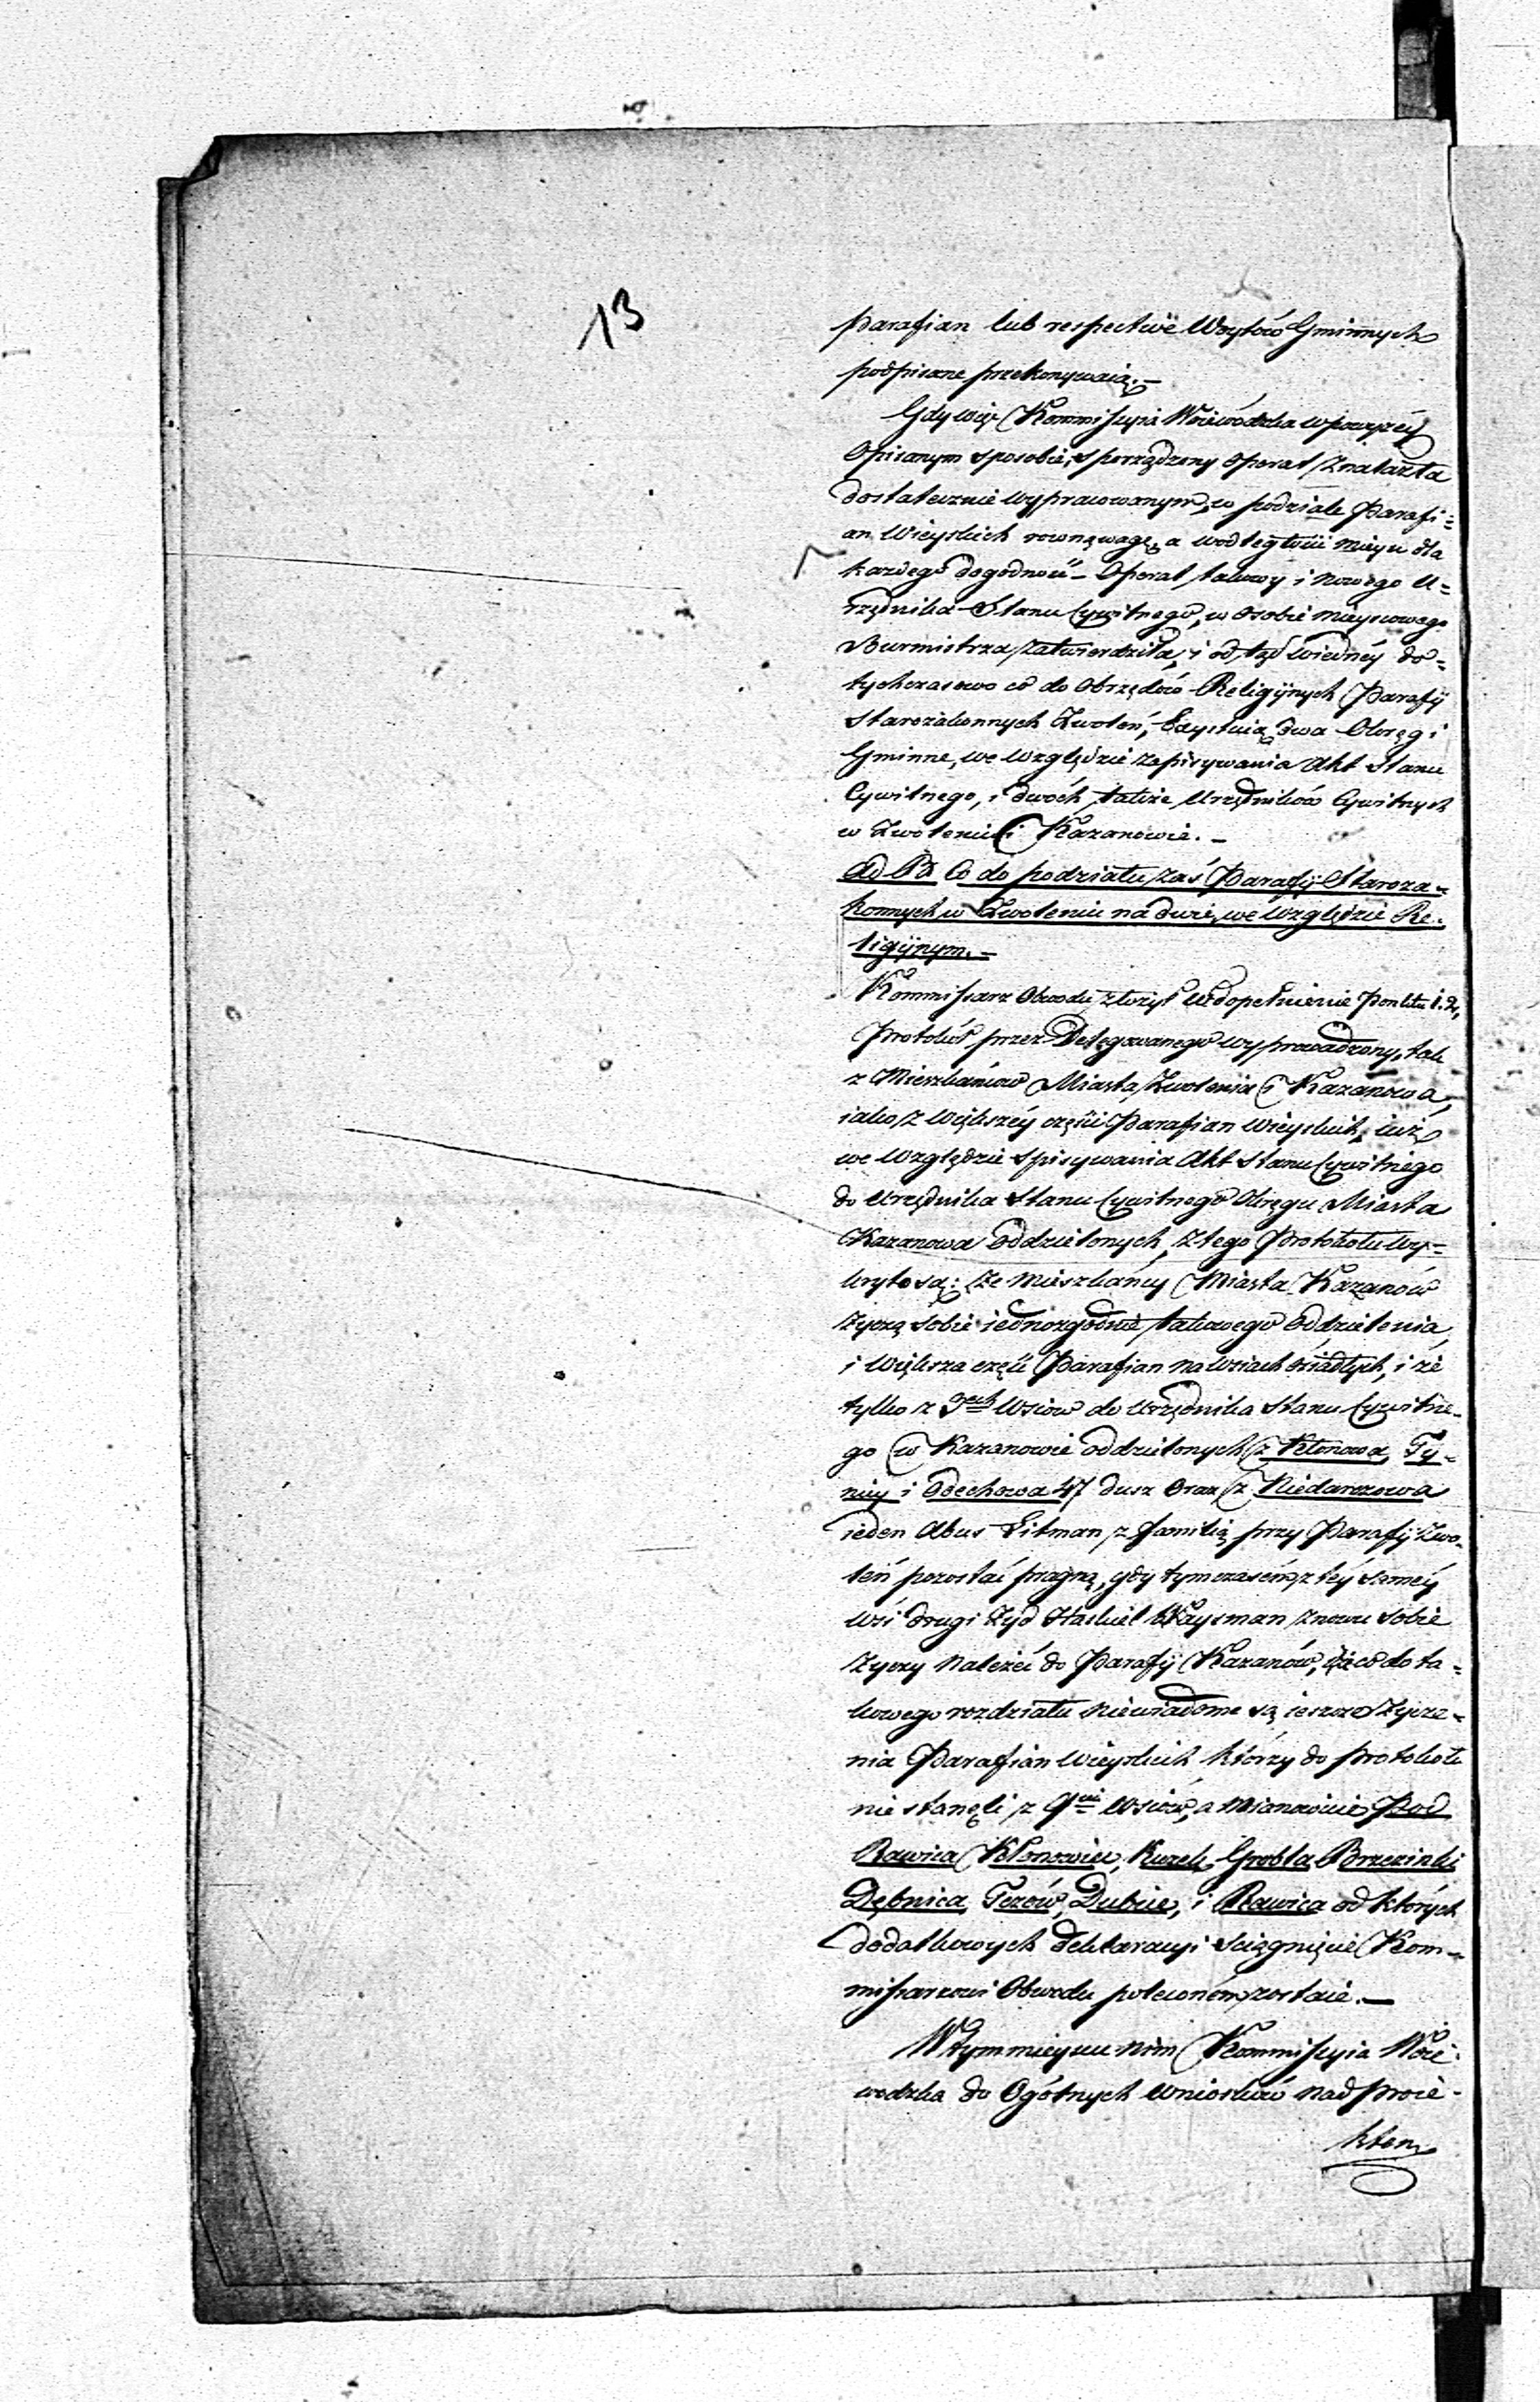 13
Parafian lub respective Woytów Gminnych
podpisane przekonywaią.–
Gdy więc Kommissyia Woiewódzka w powyżéy
Opisanym sposobie, sporządzony Operat znalazła
dostatecznie wypracowanym, w podziale Parafi=
an Wieyskich rownąwagę, a w odległości mieysc dla
każdego dogodność – Operat takowy i nowego U=
rzędnika Stanu Cywilnego, w osobie mieyscowego
Burmistrza, zatwierdziła, i odtąd w iednéy do=
tychczasowo co do Obrzędów Religiynych Parafij
Starozakonnych Zwoleń, Exystuią dwa Okręgi
Gminne, we względzie zapisywania Akt Stanu
Cywilnego, i dwóch także Urzędników Cywilnych
w Zwoleniu i Kazanowie.–
Co do podziału zaś Parafij Staroza=
konnych w Zwoleniu na dwie, we względzie Re=
ligiynym.–
Kommissarz Obwodu złożył w dopełnienie Punktu 1. 2,
Protokół przez Delegowanego wyprowadzony, tak
z Mieszkańców Miasta Zwolenia i Kazanowa,
iako z większéy części Parafian Wieyskich, iuż
we względzie spisywania Akt Stanu Cywilnego
do Urzędnika Stanu Cywilnego Okręgu Miasta
Kazanowa Oddzielonych, z tego Protokołu wy=
kryto są: że mieszkańcy Miasta Kazanów
życzą sobie iednozgodnie takowego oddzielenia,
i większa część Parafian na wsiach osiadłych, i że
tylko z 3ech Wsiow do Urzędnika Stanu Cywilne=
go w Kazanowie oddzielonych z Kłonowa, Ty=
nicy i Odechowa 47 dusz Oraz z Niedarczowa
ieden Abus Litman z familią przy Parafij Zwo=
leń pozostać pragną, gdy tymczasém z téy saméy
wsi drugi Żyd Haskiel Kaysman znowu sobie
życzy należéć do Parafij Kazanów, że co do ta=
kowego rozdziału niewiadome są ieszcze życze=
nia Parafian Wieyskich którzy do protokołu
nie stanęli z 9ciu Wsiów, a mianowicie Pod
Rawica Kłonowiec, Kurek, Grobla Brzezinki
Dębnica, Tczów, Dubie, i Rawica od których
dodatkowych deklaracyi ściągnięcie Kom=
missarzowi Obwodu poleconém zostaie.–
W tym mieyscu nim Kommissyia Woie=
wodzka do Ogólnych wniosków nad proie=
ktem